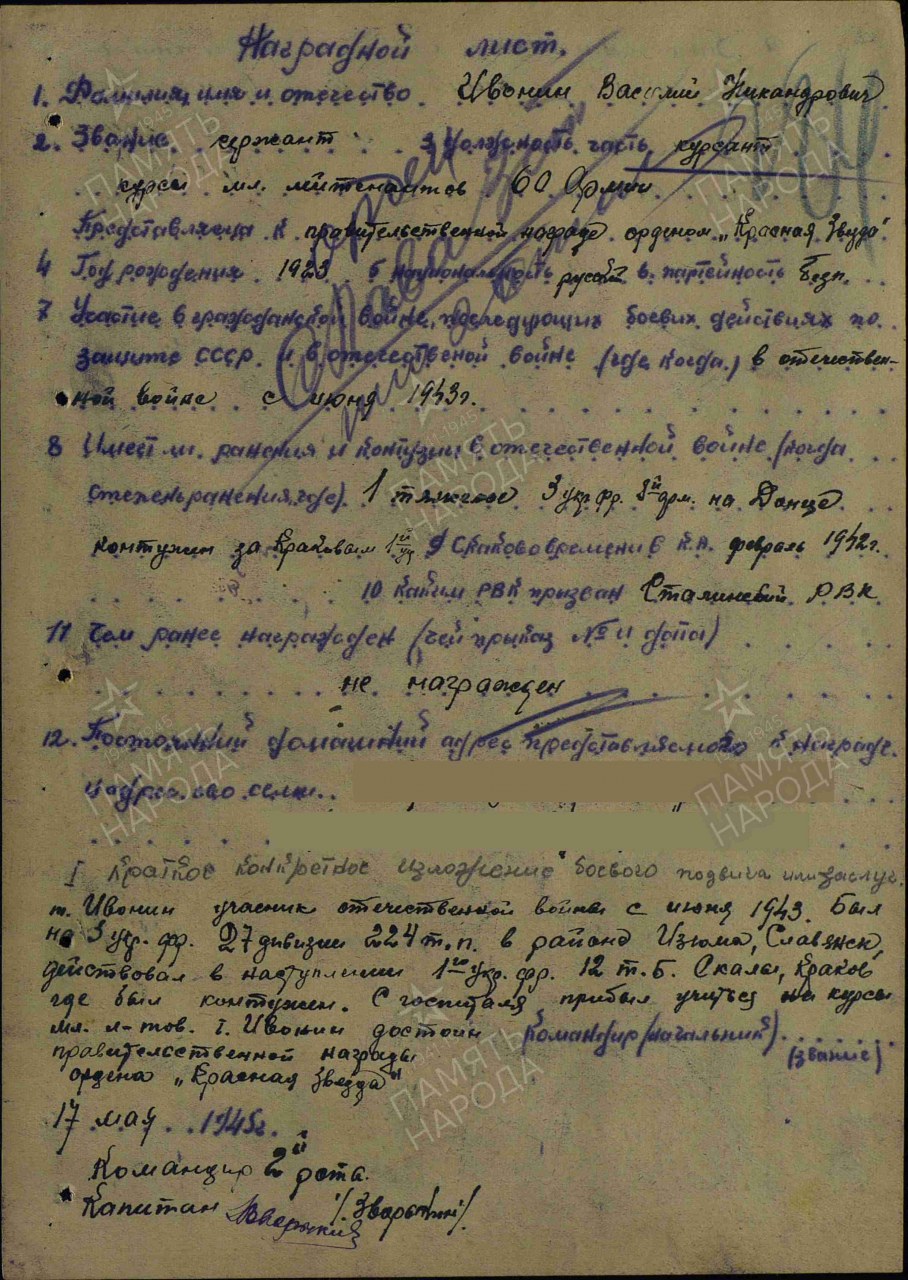 Наградной лист.
1. Фамилия, имя и отчество Ивонин Василий Никандрович
2. Звание сержант 3 Должность, часть курсант
курсы мл. лейтенантов 60 Армии
Представляется к правительственной награде орденом „Красная Звезда"
4 Год рождения 1923 5 национальность русский 6. партийность безп.
7 Участие в гражданской войне, последующих боевых действиях по
защите СССР и в отечественой войне (где, когда.) в отечествен-
ной войне с июня 1943г.
8 Имеет ли ранения и контузии в отечественной войне (когда
степень ранения, где). 1 тяжелое 3 укр. фр. 8й арм. на Донце
контужен за Краковым 1й ук 9 С какого времени в К.А. февраль 1942г.
10 Каким РВК призван Сталинский РВК
11 Чем ранее награжден (чей приказ № и дата)
не награжден
12. Постоянный домашний адрес представляемого к награде
и адрес его семьи.
I Краткое конкретное изложение боевого подвига или заслуг.
т. Ивонин учасник отечественной войны с июня 1943. Был
на 3 укр. фр. 27 дивизии 224 т.п. в районе Изюма, Славянск,
действовал в наступлении 1го укр. фр. 12 т.б. Скалы, Краков
где был контужен. С госпиталя прибыл учиться на курсы
мл. л-тов. т. Ивонин достоин Командир (начальник)
правительсственной награды (звание)
ордена „Красная Звезда"
17 мая 1945г.
Командир 2й роты
Капитан /Зверыкин/
ПАМЯТЬ НАРОДА